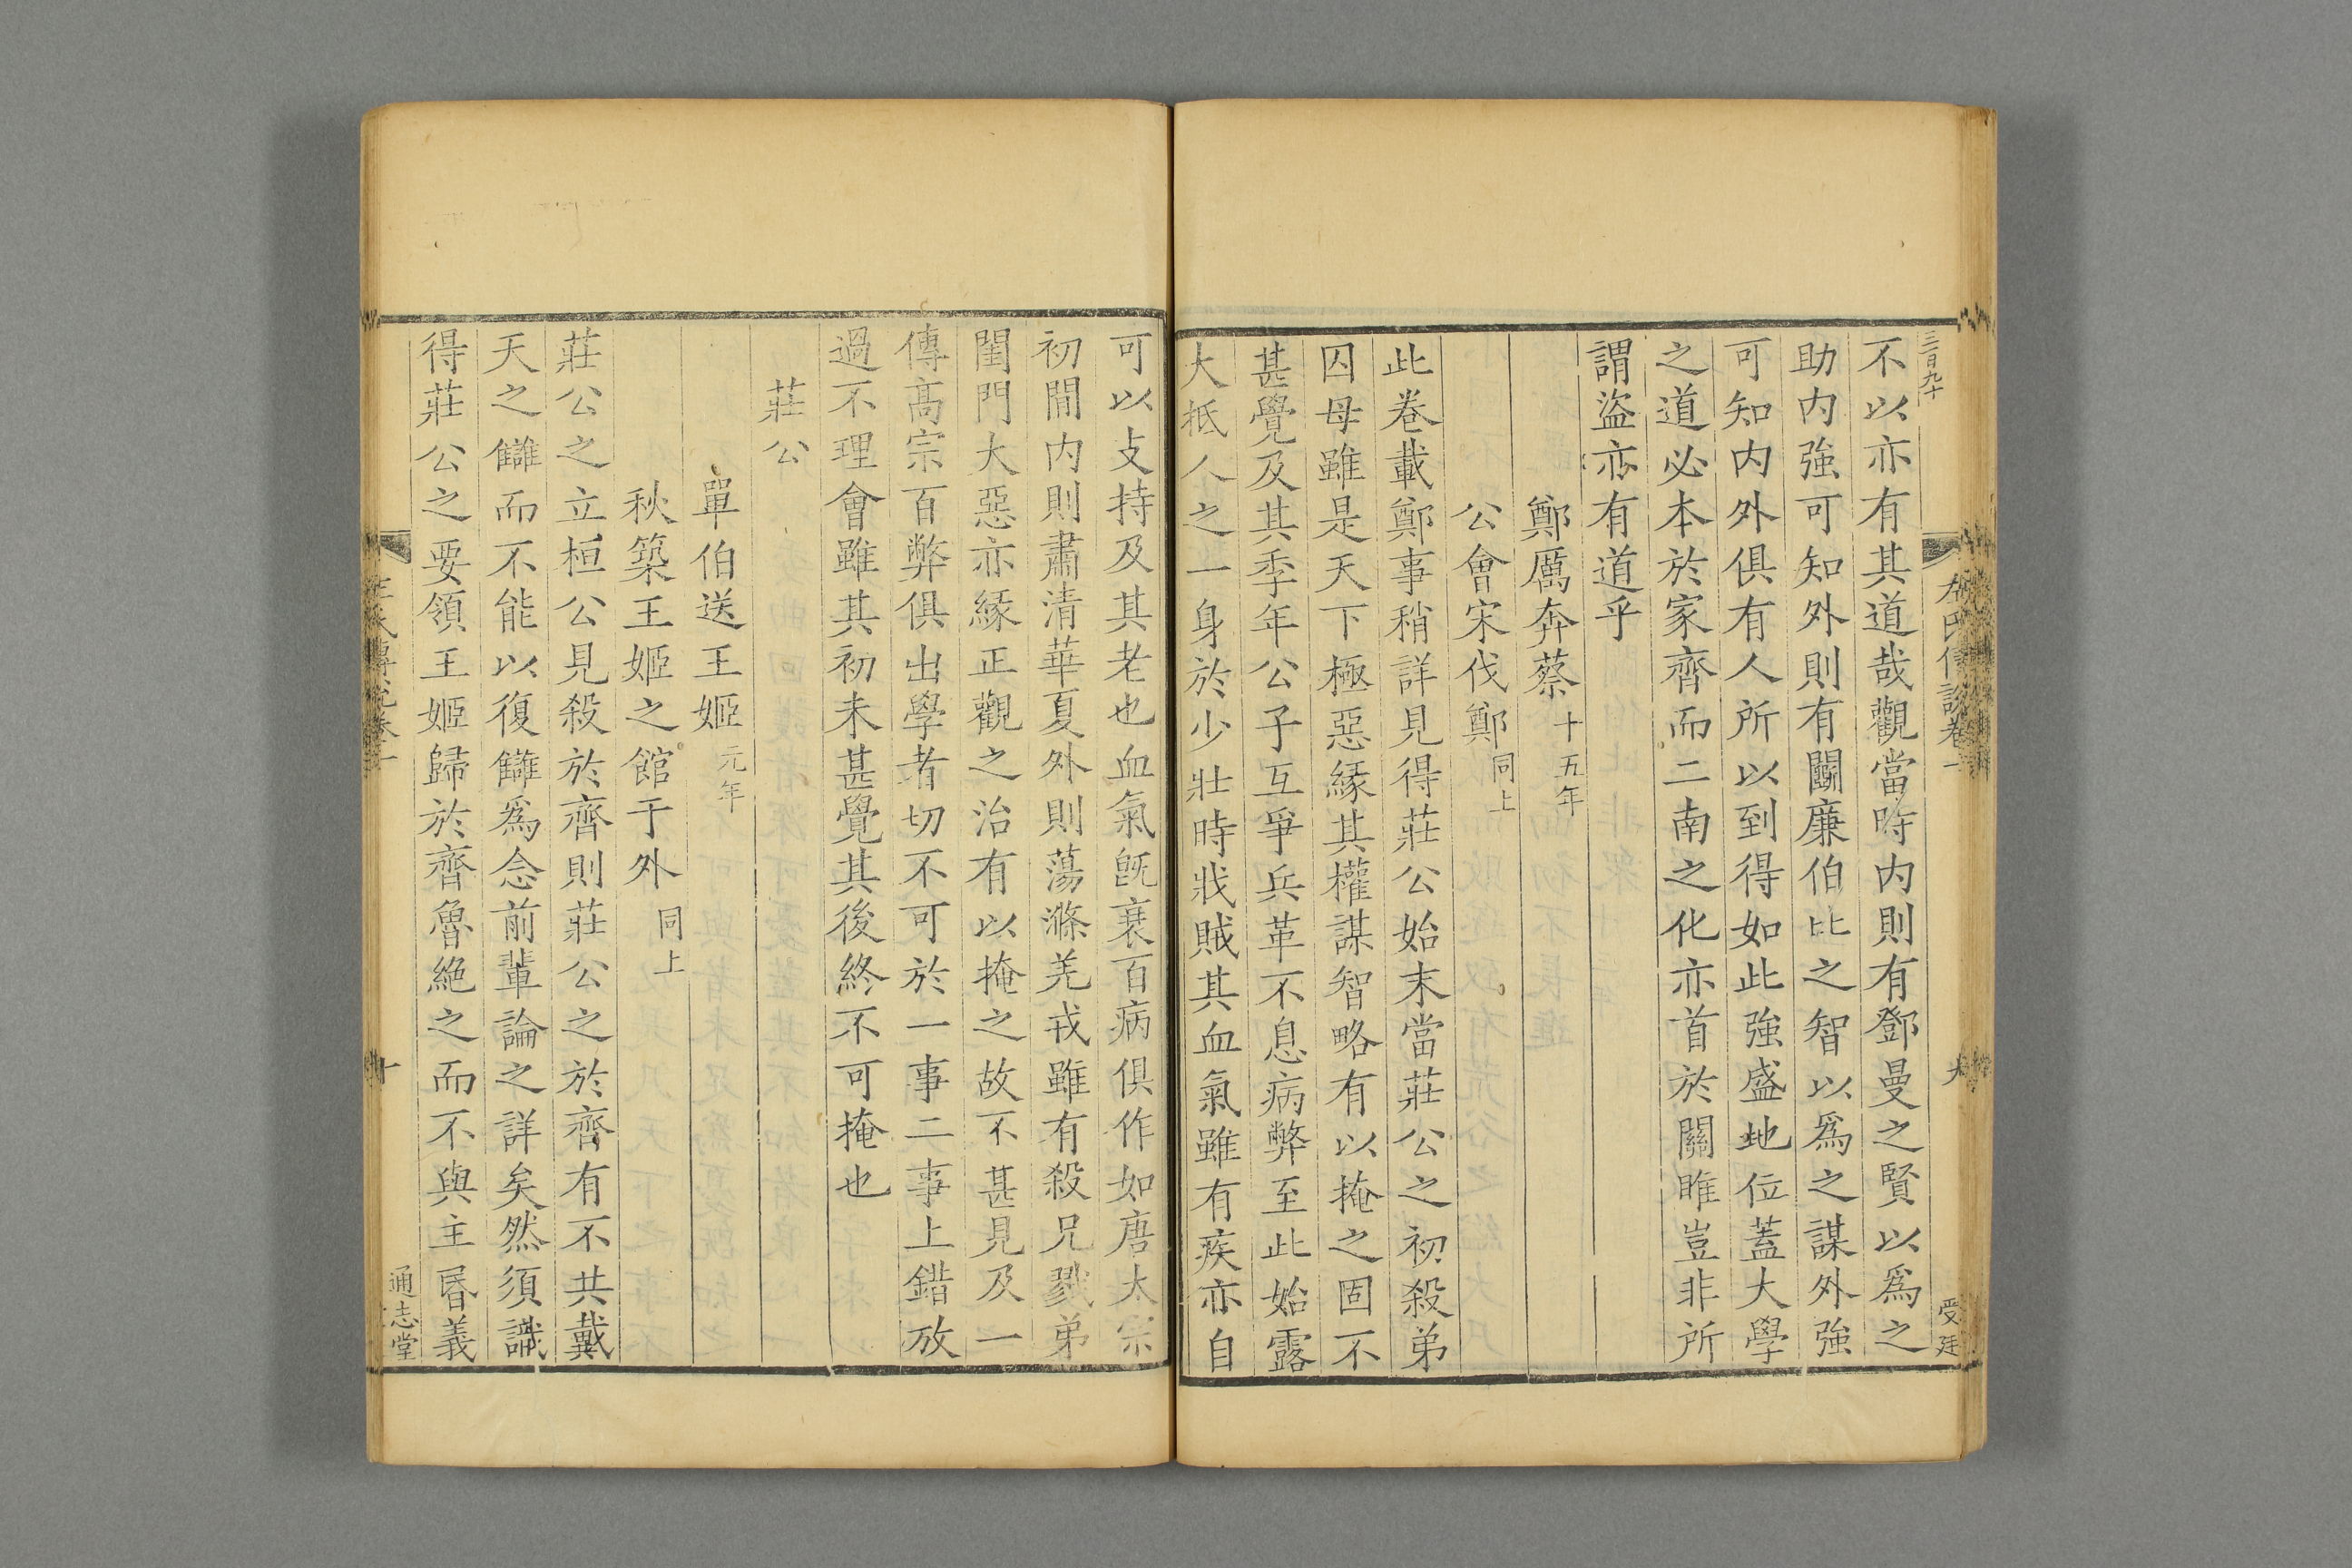 三百九十
左氏傳說卷一
九
受廷
不以亦有其道哉觀當時内則有鄧曼之賢以爲之
助内強可知外則有鬭廉伯比之智以爲之謀外強
可知内外俱有人所以到得如此強盛地位蓋大學
之道必本於家齊而二南之化亦首於關雎豈非所
謂盜亦有道乎
鄭厲奔蔡十五年
公會宋伐鄭同上
此卷載鄭事稍詳見得莊公始末當莊公之初殺弟
囚母雖是天下極惡緣其權謀智略有以掩之固不
甚覺及其季年公子互爭兵革不息病弊至此始露
大抵人之一身於少壯時戕賊其血氣雖有疾亦自
可以支持及其老也血氣旣衰百病俱作如唐太宗
初閒内則肅清華夏外則蕩滌羌戎雖有殺兄戮弟
閨門大惡亦緣正觀之治有以掩之故不甚見及一
傳高宗百弊俱出學者切不可於一事二事上錯放
過不理會雖其初未甚覺其後終不可掩也
莊公
單伯送王姬元年
秋築王姬之館于外同上
莊公之立桓公見殺於齊則莊公之於齊有不共戴
天之讎而不能以復讎爲念前輩論之詳矣然須識
得莊公之要領王姬歸於齊魯絶之而不與主昏義
左氏傳說卷一
十
通志堂